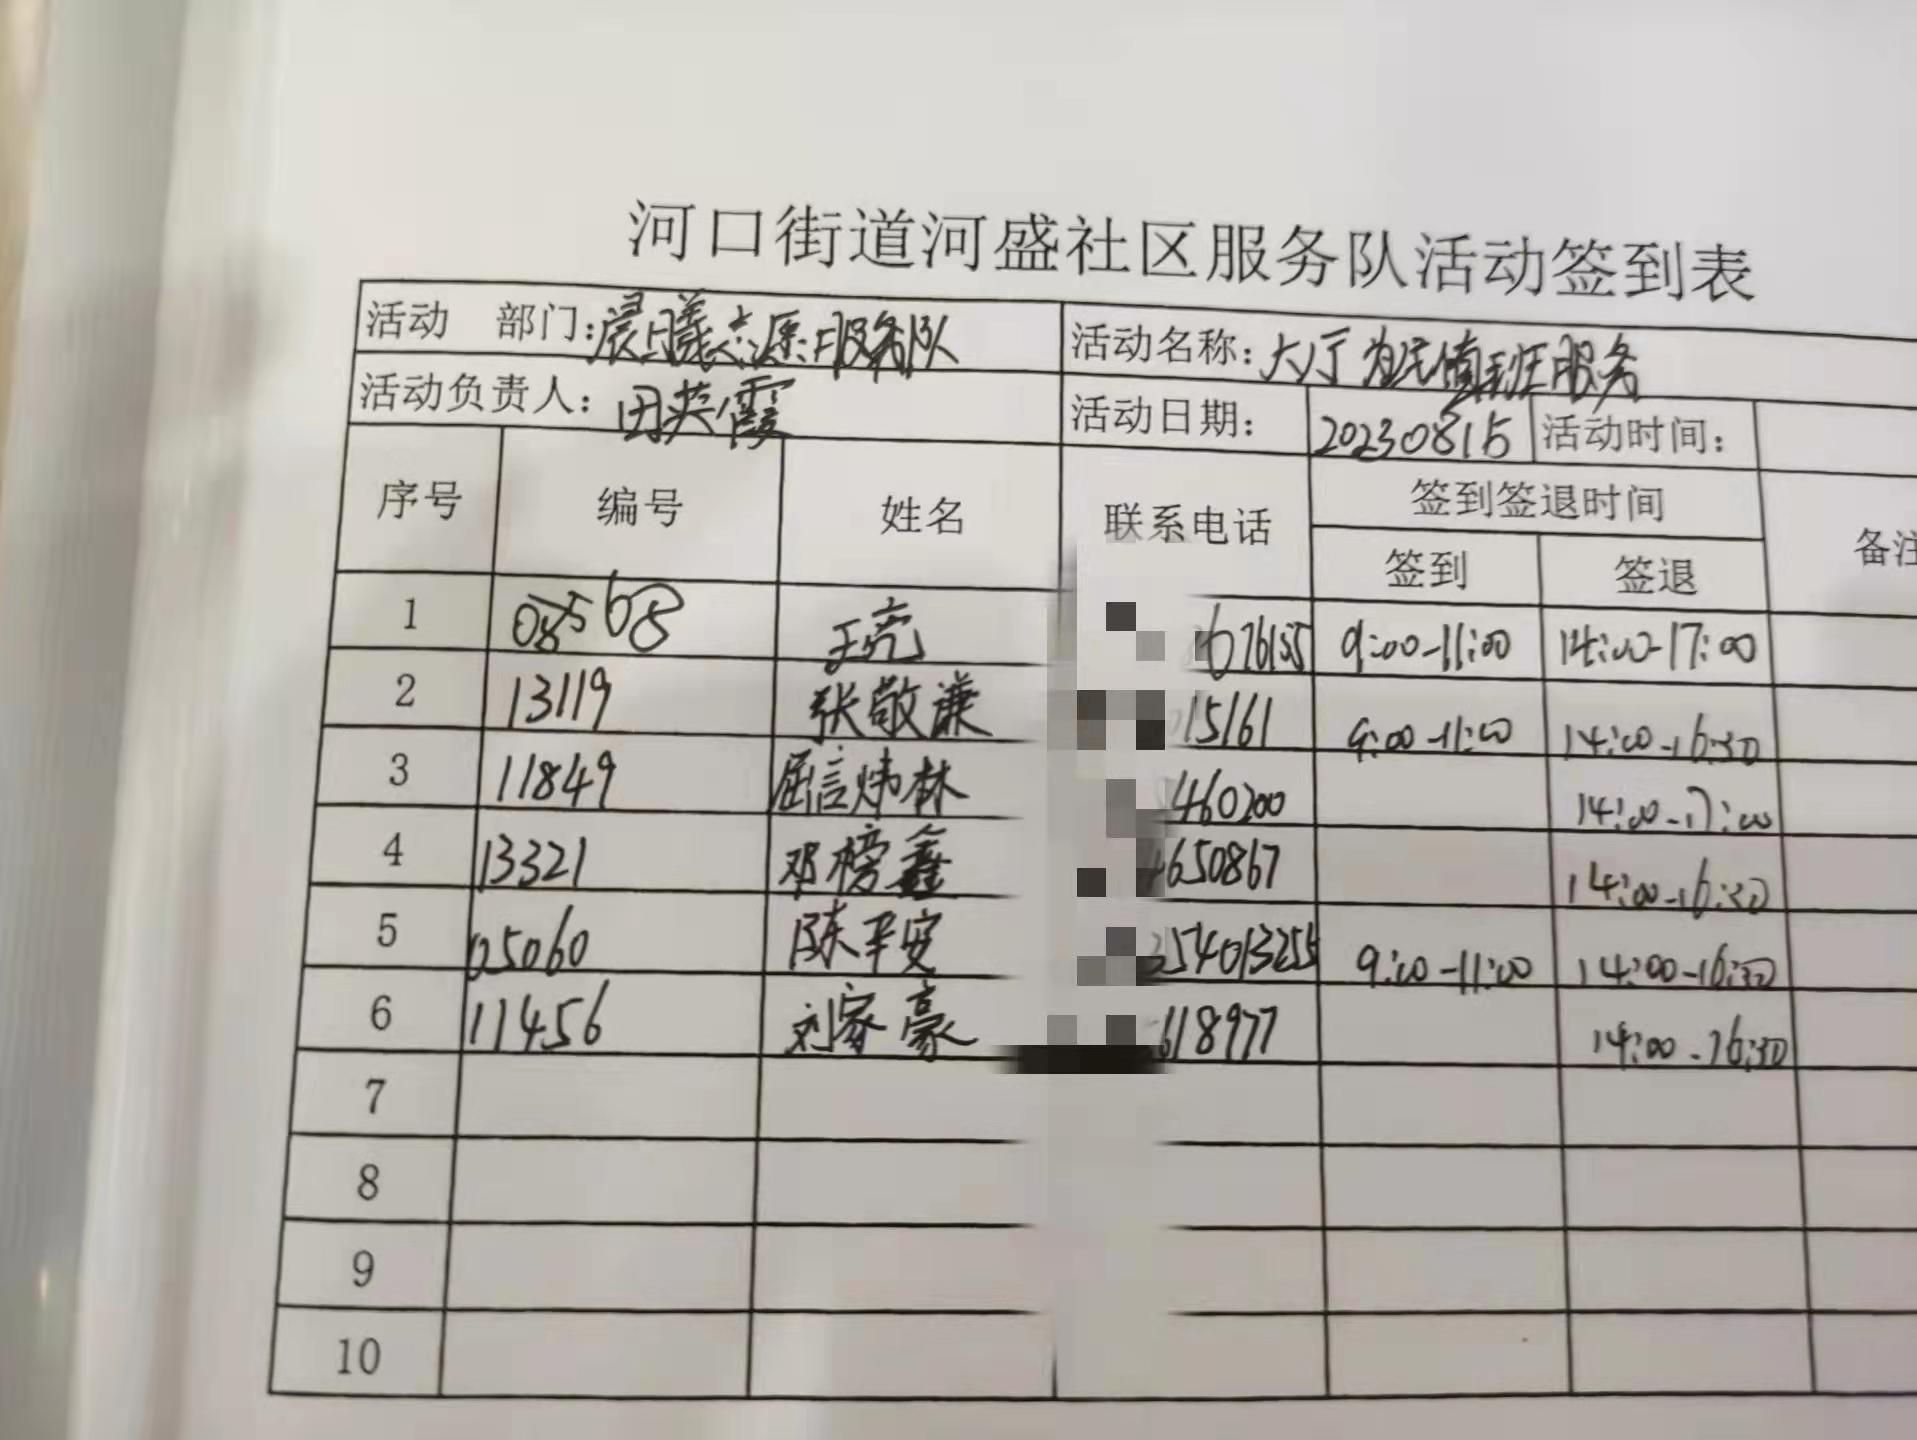 河口街道河盛社区服务队活动签到表
活动 部门：晨曦志愿服务队 活动名称：大厅为民值班服务
活动负责人：田英霞 活动日期： 20230815 活动时间：
序号 编号 姓名 联系电话 签到签退时间 备注
签到 签退
1 08568 王亮 676155 9:00-11:00 14:00-17:00
2 13119 张敬谦 15161 9:00-11:00 14:00-16:30
3 11849 屈信炜林 460200 14:00-17:00
4 13321 邓榜鑫 4650867 14:00-16:30
5 05060 陈平安 254013255 9:00-11:00 14:00-16:30
6 11456 刘家豪 618977 14:00-16:30
7
8
9
10